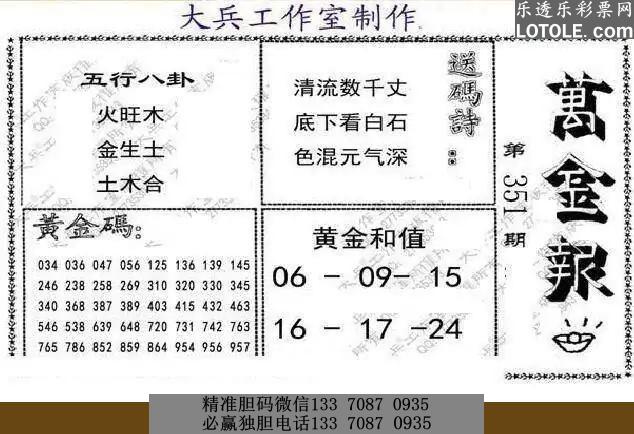 大兵工作室制作
乐透乐彩票网
LOTOLE.COM
五行八卦
火旺木
金生土
土木合
送碼詩：
清流数千丈
底下看白石
色混元气深
萬金報
第351期
黃金碼：
034 036 047 056 125 136 139 145
246 238 258 269 310 320 330 345
340 368 387 389 403 415 432 463
546 538 639 648 720 731 742 763
765 786 852 859 864 954 956 957
黄金和值
06 - 09- 15
16 - 17 -24
精准胆码微信133 7087 0935
必赢独胆电话133 7087 0935